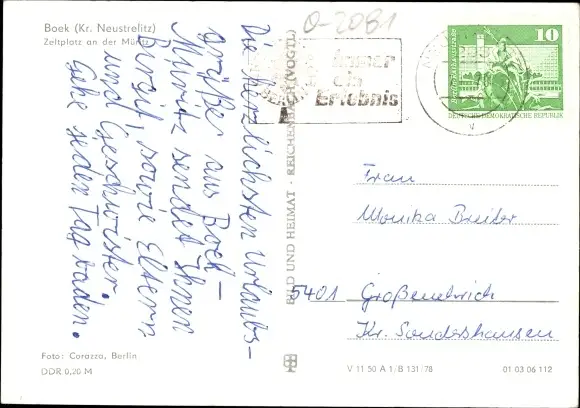 Boek (Kr. Neustrelitz)
Zeltplatz an der Müritz
Die herzlichsten Urlaubs-
grüße aus Boek –
Müritz sendet Ihnen
Birgit, sowie Eltern
und Geschwister.
Gehe jeden Tag baden.
Foto: Corazza, Berlin
DDR 0,20 M
BILD UND HEIMAT · REICHENBACH (VOGTL)
0-2081
immer
ein
Erlebnis
10
DEUTSCHE DEMOKRATISCHE REPUBLIK
Frau
Monika Breiter
5401 Großenehrich
Kr. Sondershausen
V 11 50 A 1/B 131/78
01 03 06 112